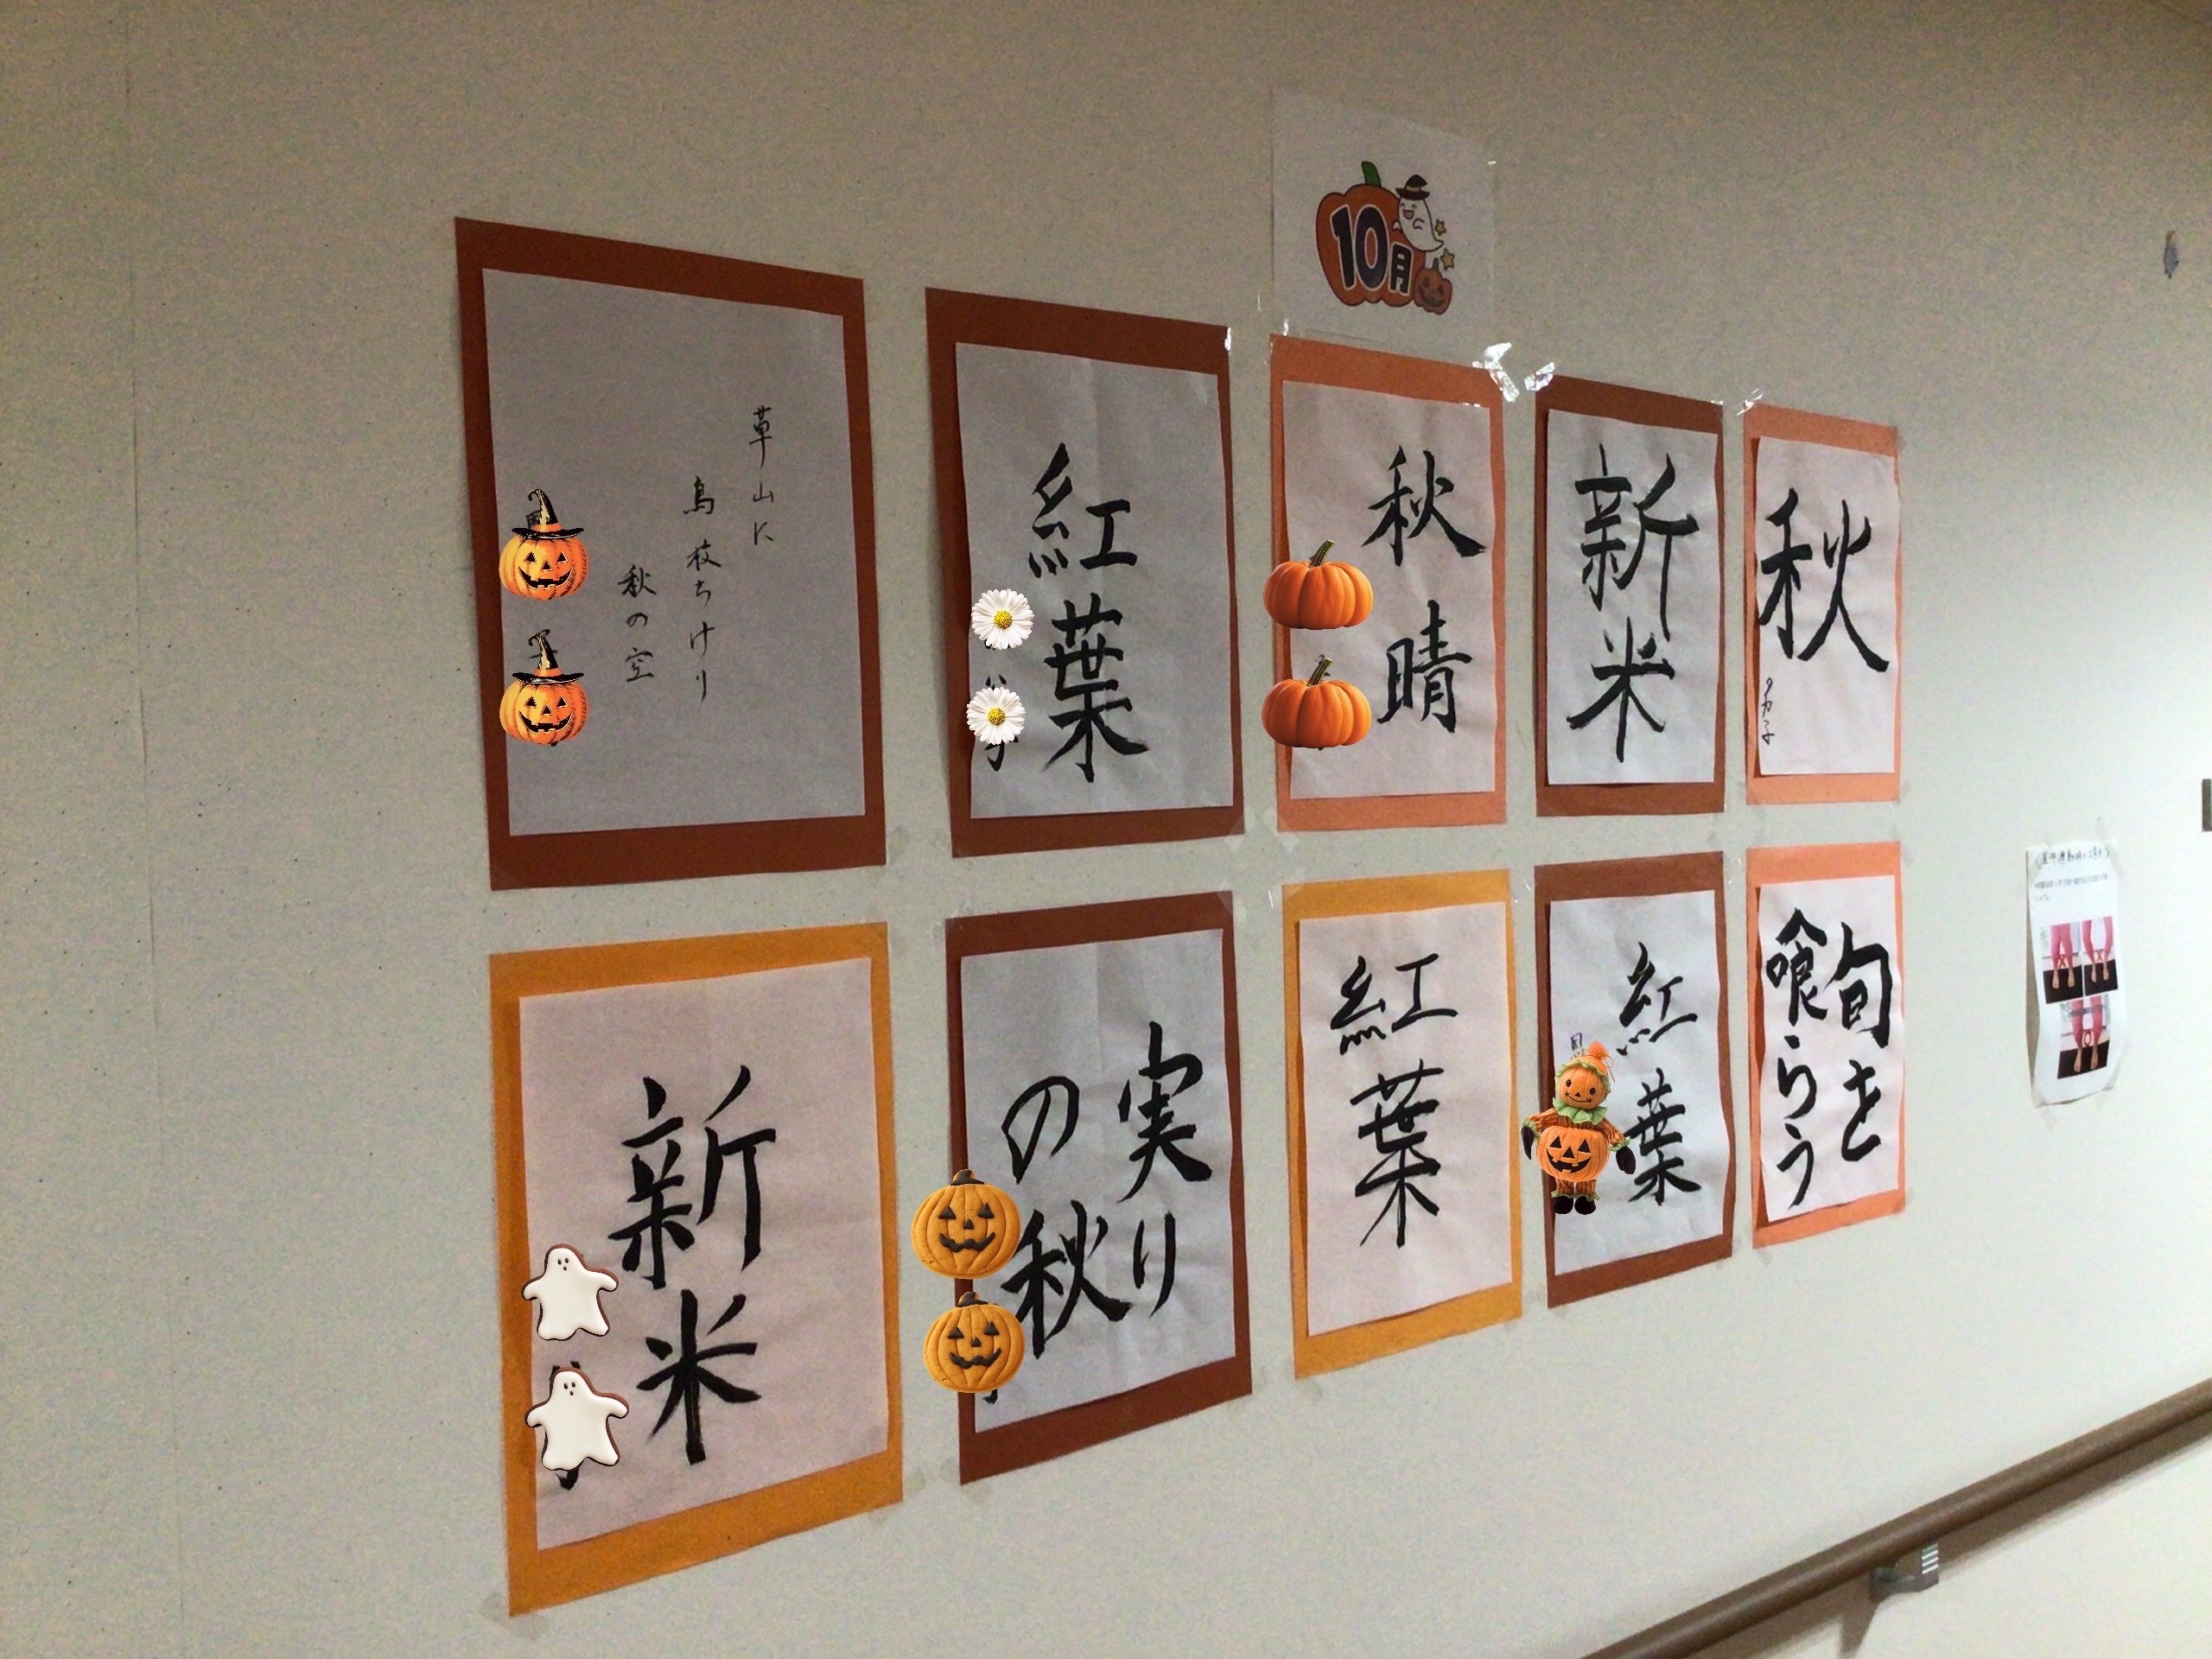 10月
秋
タカ子
新米
秋晴
紅葉
草山に
鳥 枝ちけり
秋の空
旬を
喰らう
紅葉
紅葉
実り
の秋
新米